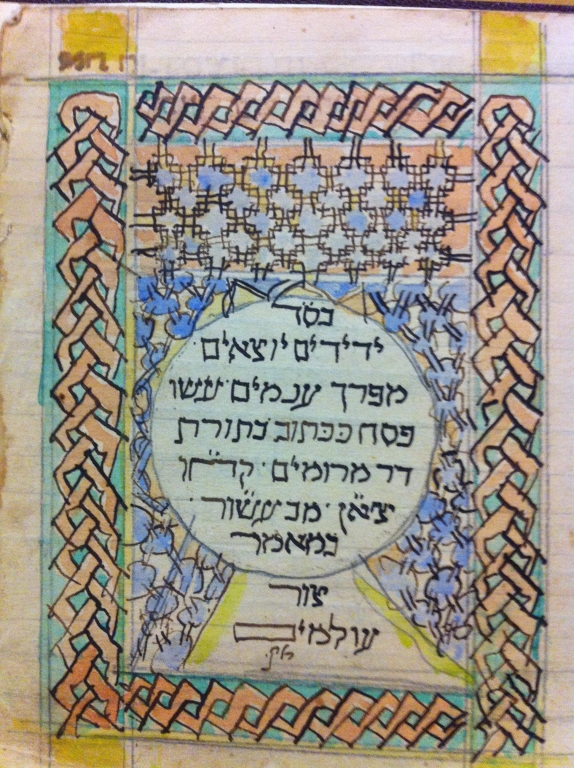 בס״ד
ידידים יוצאים·
מפרך ענמים·עשו
פסח ככתוב בתורת
דר מרומים·
מב עשור·
במאמר
צור
עולמי